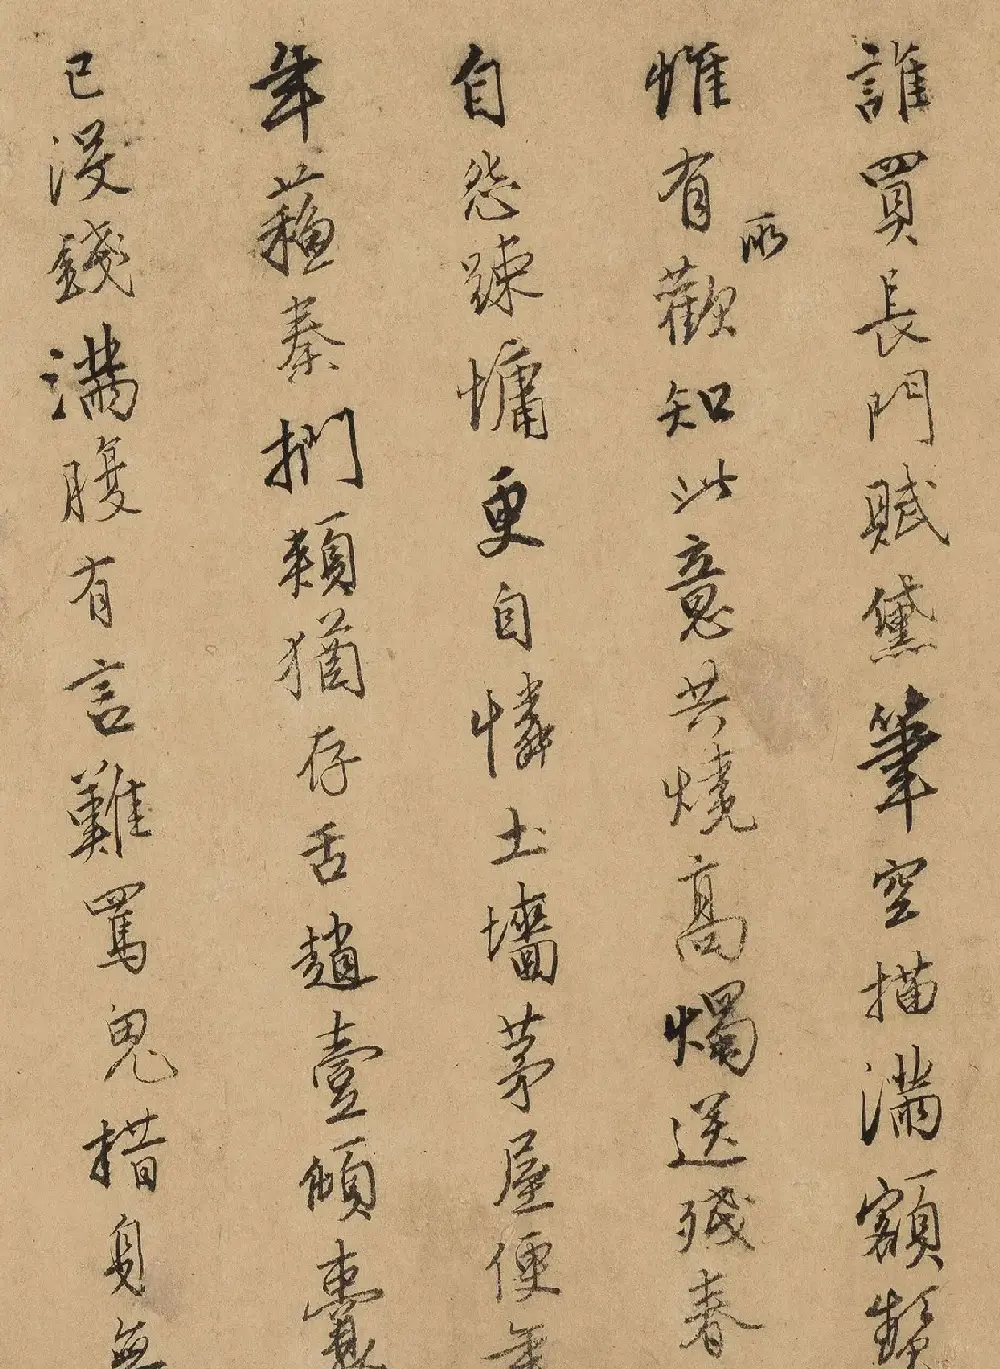 誰買長門賦黛筆空描滿額顰
惟有歡知此意共燒高燭送殘春
所
自怨踈慵更自憐土墻茅屋便年
年蘓秦捫頰猶存舌趙壹傾囊
已沒錢滿腹有言難罵鬼措身無